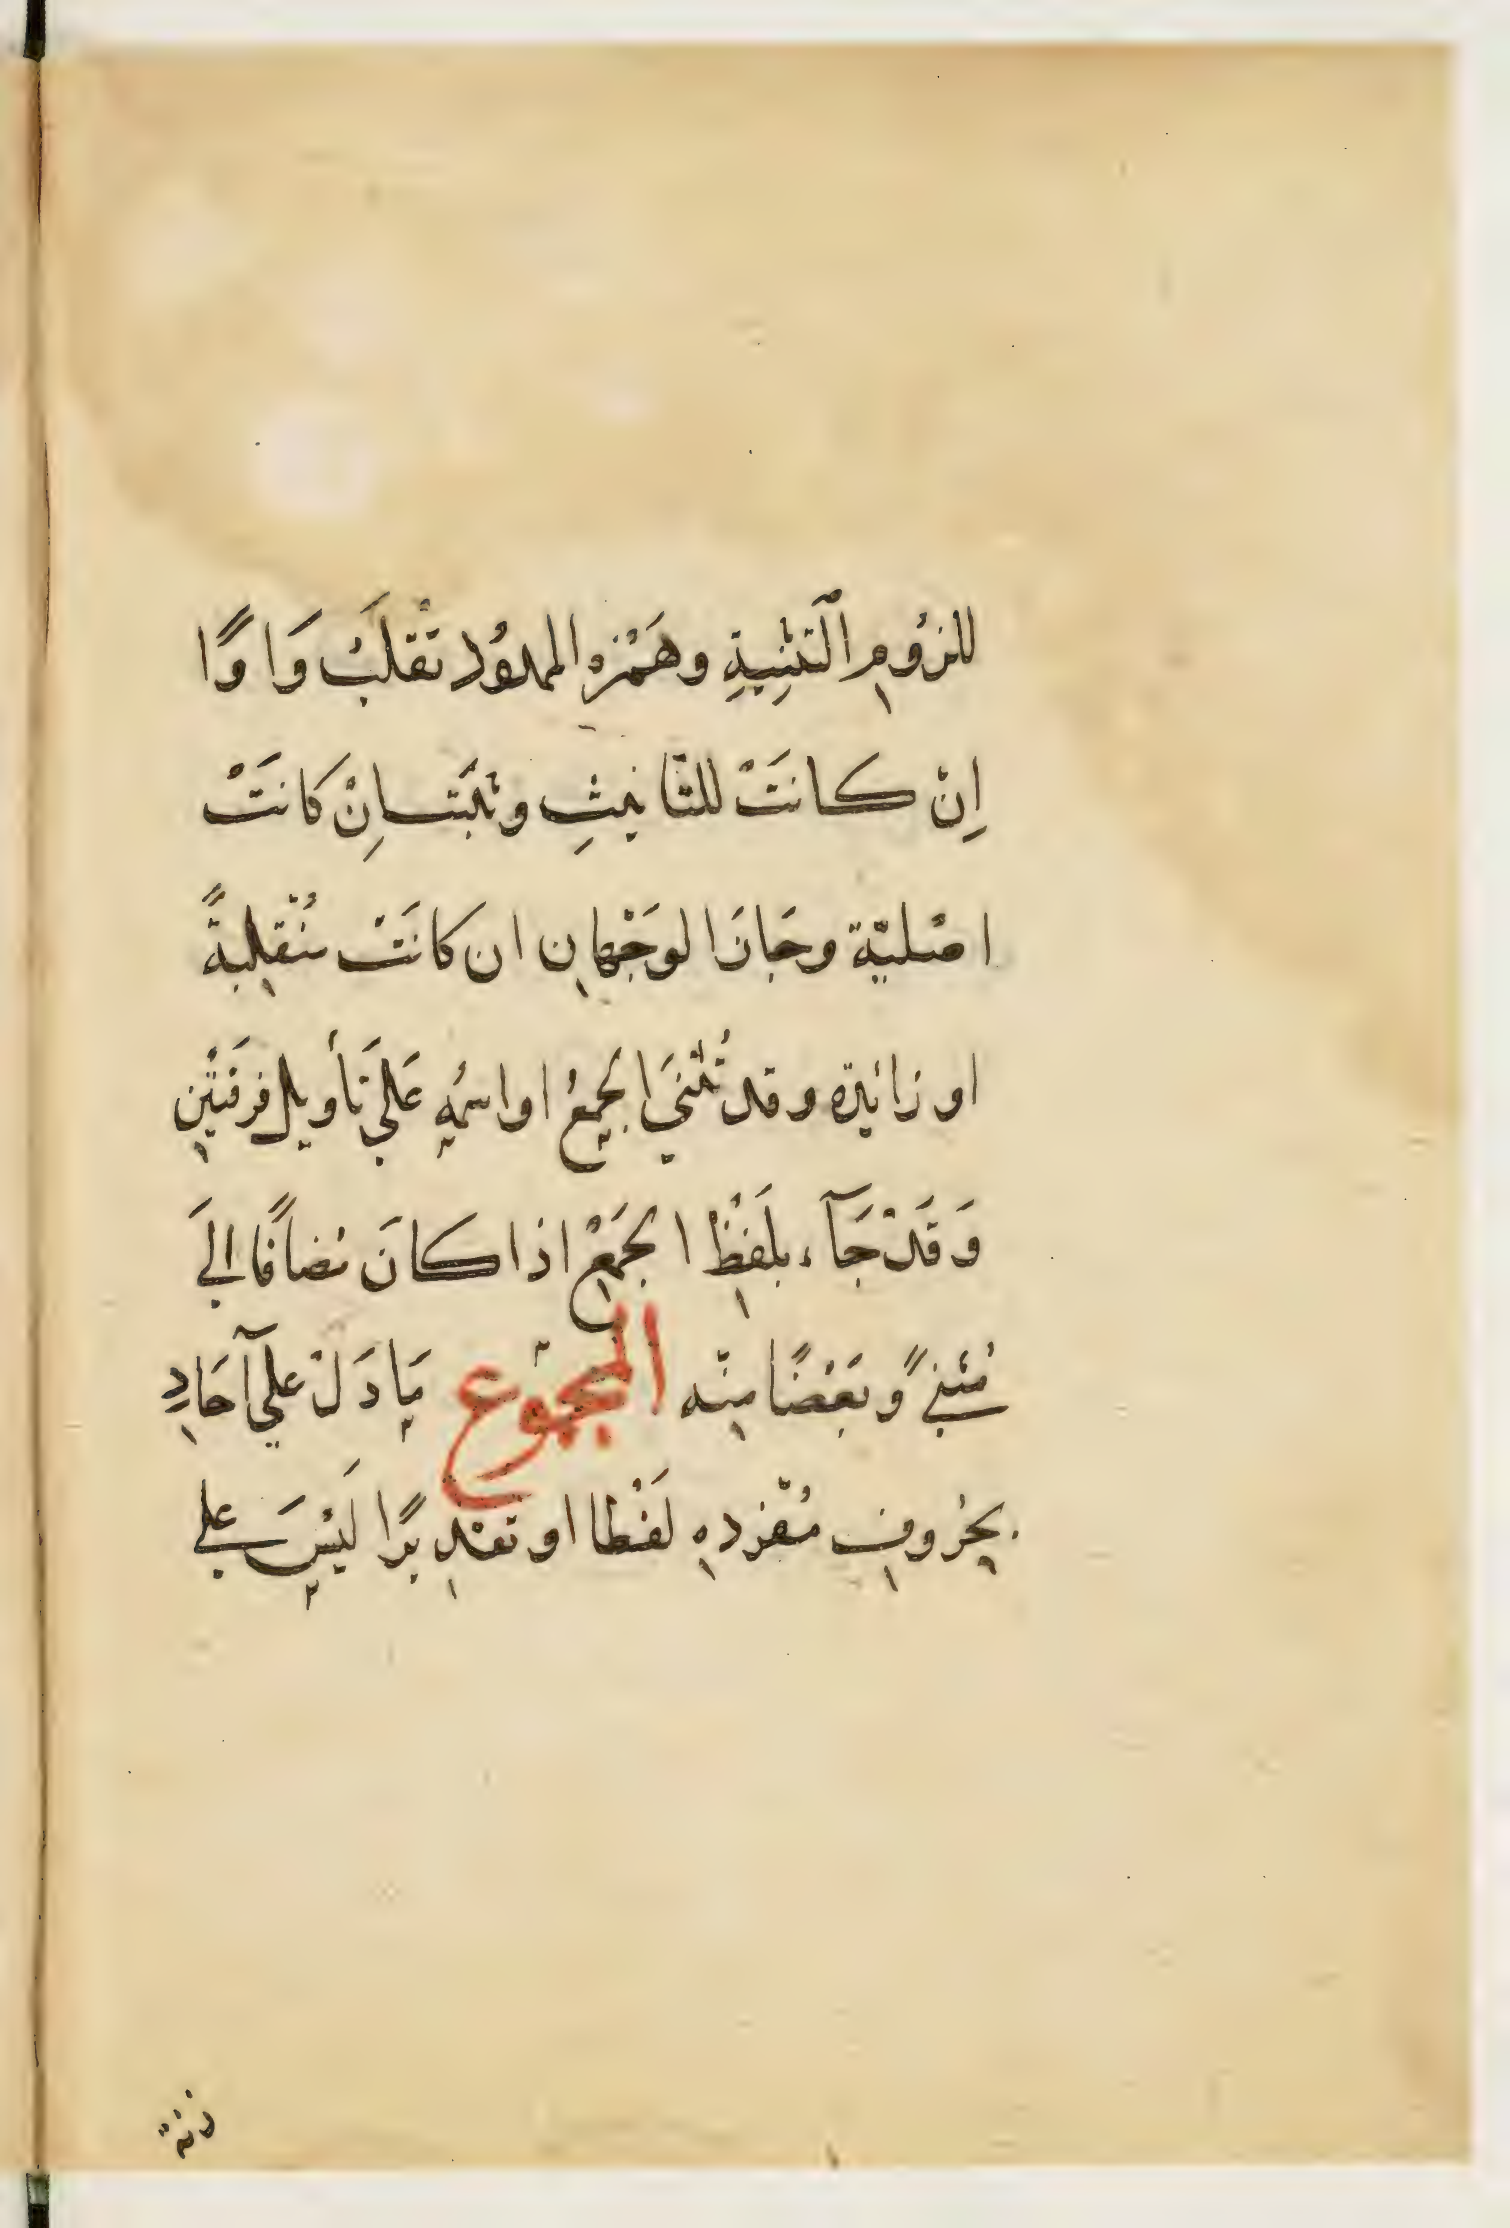 للزُومِ الَّتثنِيةِ وهَمْزه الممدوُد تقْلَبُ وَاوًا
اِنْ كانَتْ للتّانيثِ وتثبَت اِنْ كانَتْ
اصْليّة وجَازَ الوَجْهانِ ان كانَتْ مُنْقلِبةً
او زائيدة وقد تُثْنيَ الجمِعُ او اسْمُهِ عَليَ تأويل فرقَتْينِ
وَقَدْ جَآء بلَفْظِ الجمَعْ اذا كانَ مُضافًا اليَ
مُثنيً وبَعْضًا منِه الجموُع مَا دَلْ علي آحَادِ
بِحُروفِ مُفْردهِ لَفْظا او تقْدِيرًا لَيْسَ علي
زنة